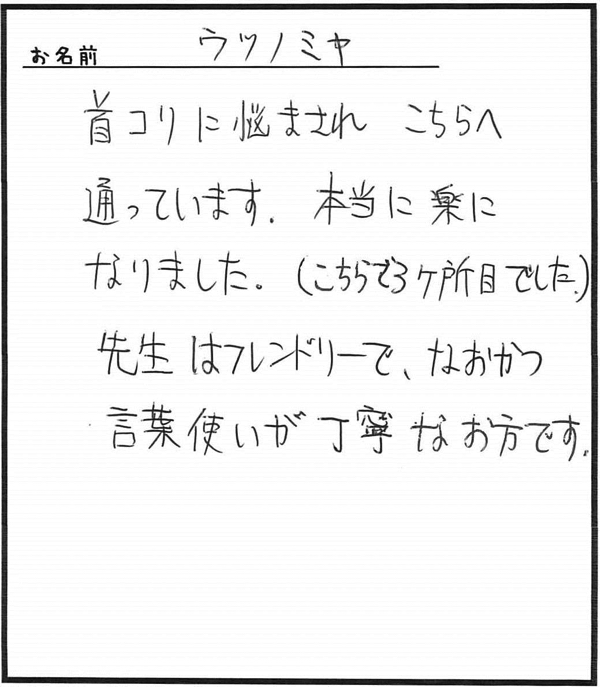 お名前 ウツノミヤ
首コリに悩まされ こちらへ
通っています. 本当に楽に
なりました。(こちらで3ヶ所目でした.)
先生はフレンドリーで、なおかつ
言葉使いが丁寧なお方です.